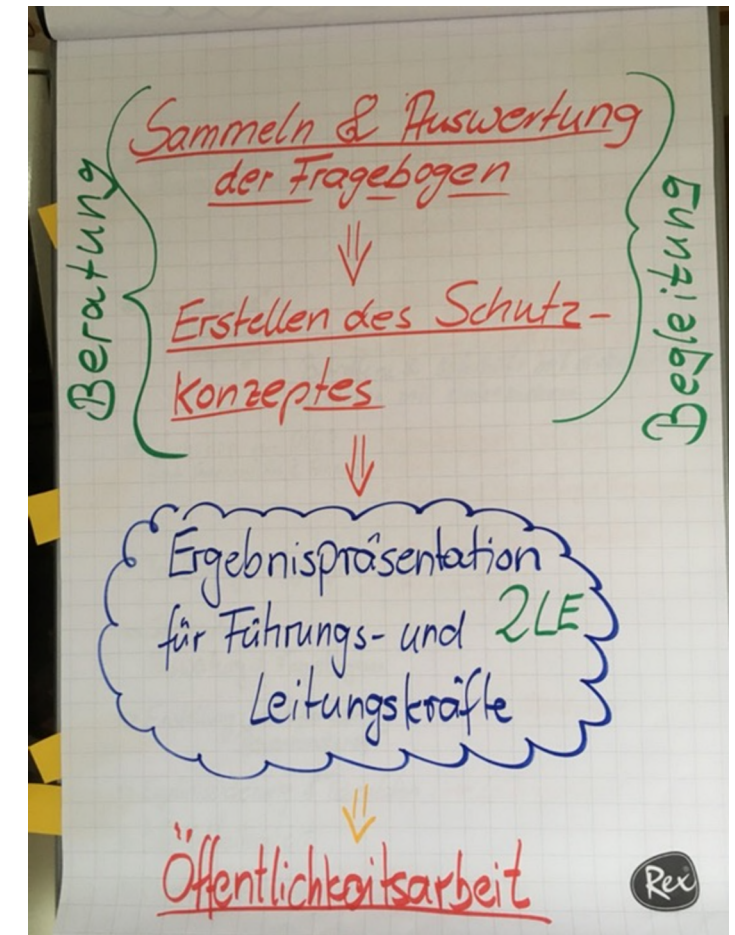 Sammeln & Auswertung
der Fragebogen
Beratung
Begleitung
⇓
Erstellen des Schutz-
konzeptes
⇓
Ergebnispräsentation
für Führungs- und 2LE
Leitungskräfte
⇓
Öffentlichkeitsarbeit
Rex